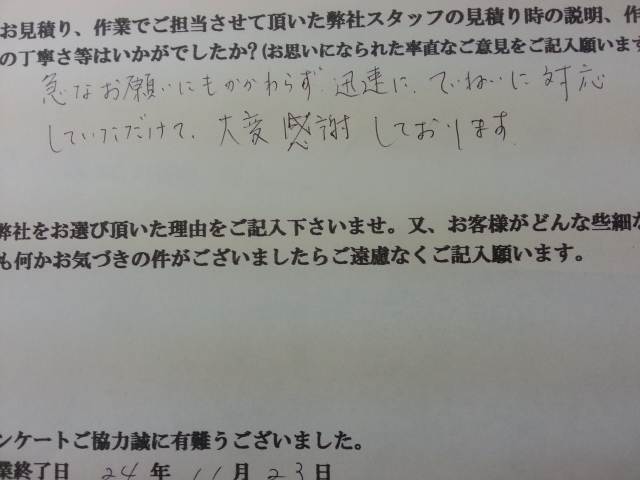 お見積り、作業でご担当させて頂いた弊社スタッフの見積り時の説明、作
の丁寧さ等はいかがでしたか?(お思いになられた率直なご意見をご記入願います
急なお願いにもかかわらず 迅速に、ていねいに対応
していただけて、大変感謝しております。
弊社をお選び頂いた理由をご記入下さいませ。又、お客様がどんな些細な
も何かお気づきの件がございましたらご遠慮なくご記入願います。
ンケートご協力誠に有難うございました。
業終了日 24年 11月 23日